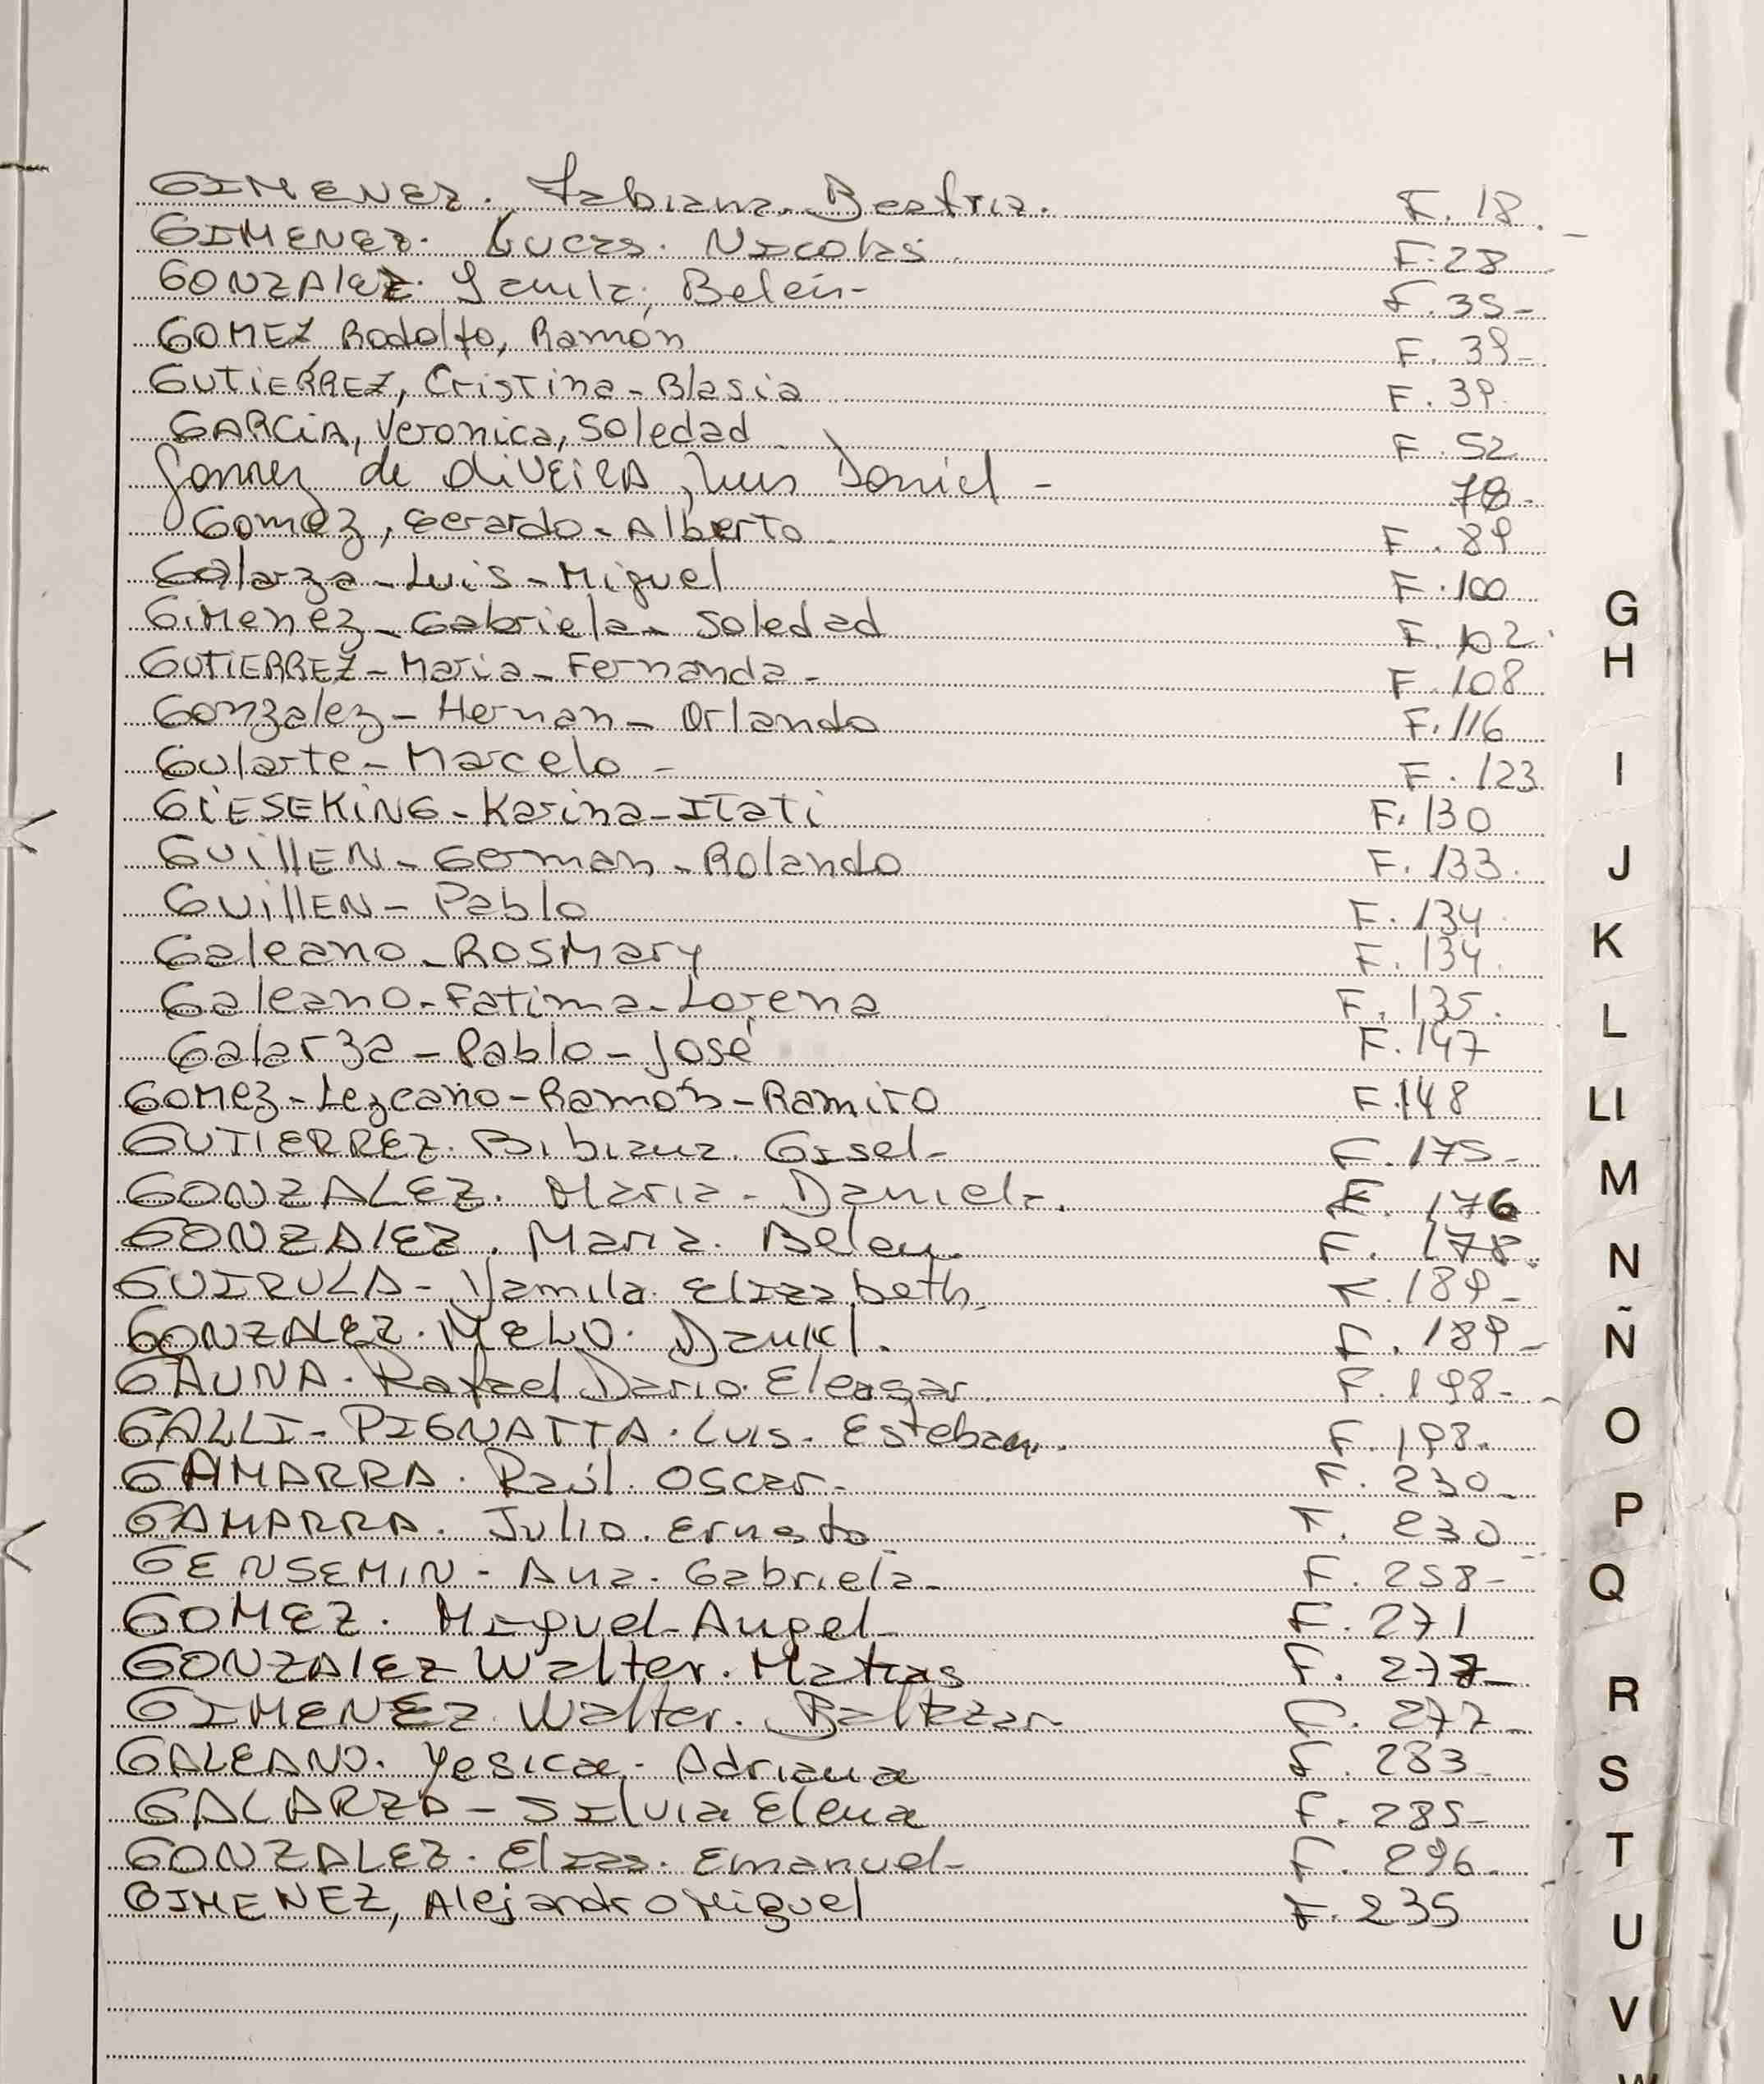 GIMENEZ. Fabiana. Beatriz. F. 18.
GIMENEZ. Lucas. Nicolas. F. 28
GONZALEZ. Yamila, Belén- F. 35-
GOMEZ Rodolfo, Ramón F. 39-
GUTIERREZ, Cristina-Blasia F. 39.
GARCIA, Veronica, Soledad F. 52
de OliVEIRA, Luis Daniel - 78-
Gomez, Gerardo-Alberto F. 89
Galarza-Luis-Miguel F. 100
Gimenez-Gabriela-Soledad F. 102.
GUTIERREZ-Maria-Fernanda- F. 108
Gonzalez-Hernan-Orlando F. 116
Gularte-Marcelo - F. 123
GIESEKING-Karina-Itati F. 130
GUillEN-German-Rolando F. 133.
GUillEN-Pablo F. 134.
Galeano-Rosmary F. 134.
Galeano-Fatima-Lorena F. 135.
Galarza-Pablo-José F. 147
Gomez-Lezcano-Ramón-Ramiro F. 148
GUTIERREZ. Bibiana. Gisel- F. 175-
GONZALEZ. Maria-Daniela. F. 176
GONZALEZ. Maria. Belen. F. 178.
GUIRULA- Yamila. Elizabeth. F. 189-
GONZALEZ. MELO. Daniel. F. 189-
GAUNA. Rafael Dario. Eleazar. F. 198-
GALLI-PIGNATTA. Luis. Esteban. F. 198.
GAMARRA. Raúl. Oscar. F. 230-
GAMARRA. Julio. Ernesto F. 230
GENSEMIN-Ana. Gabriela- F. 258-
GOMEZ. Miguel-Angel- F. 271
GONZALEZ Walter. Matias F. 277-
GIMENEZ. Walter. Baltazar. F. 277-
GALEANO. Yesica. Adriana F. 283-
GALARZA-Silvia Elena F. 285-
GONZALEZ. Elias. Emanuel- F. 296.
GIMENEZ, Alejandro Miguel F. 235
G
H
I
J
K
L
Ll
M
N
Ñ
O
P
Q
R
S
T
U
V
W